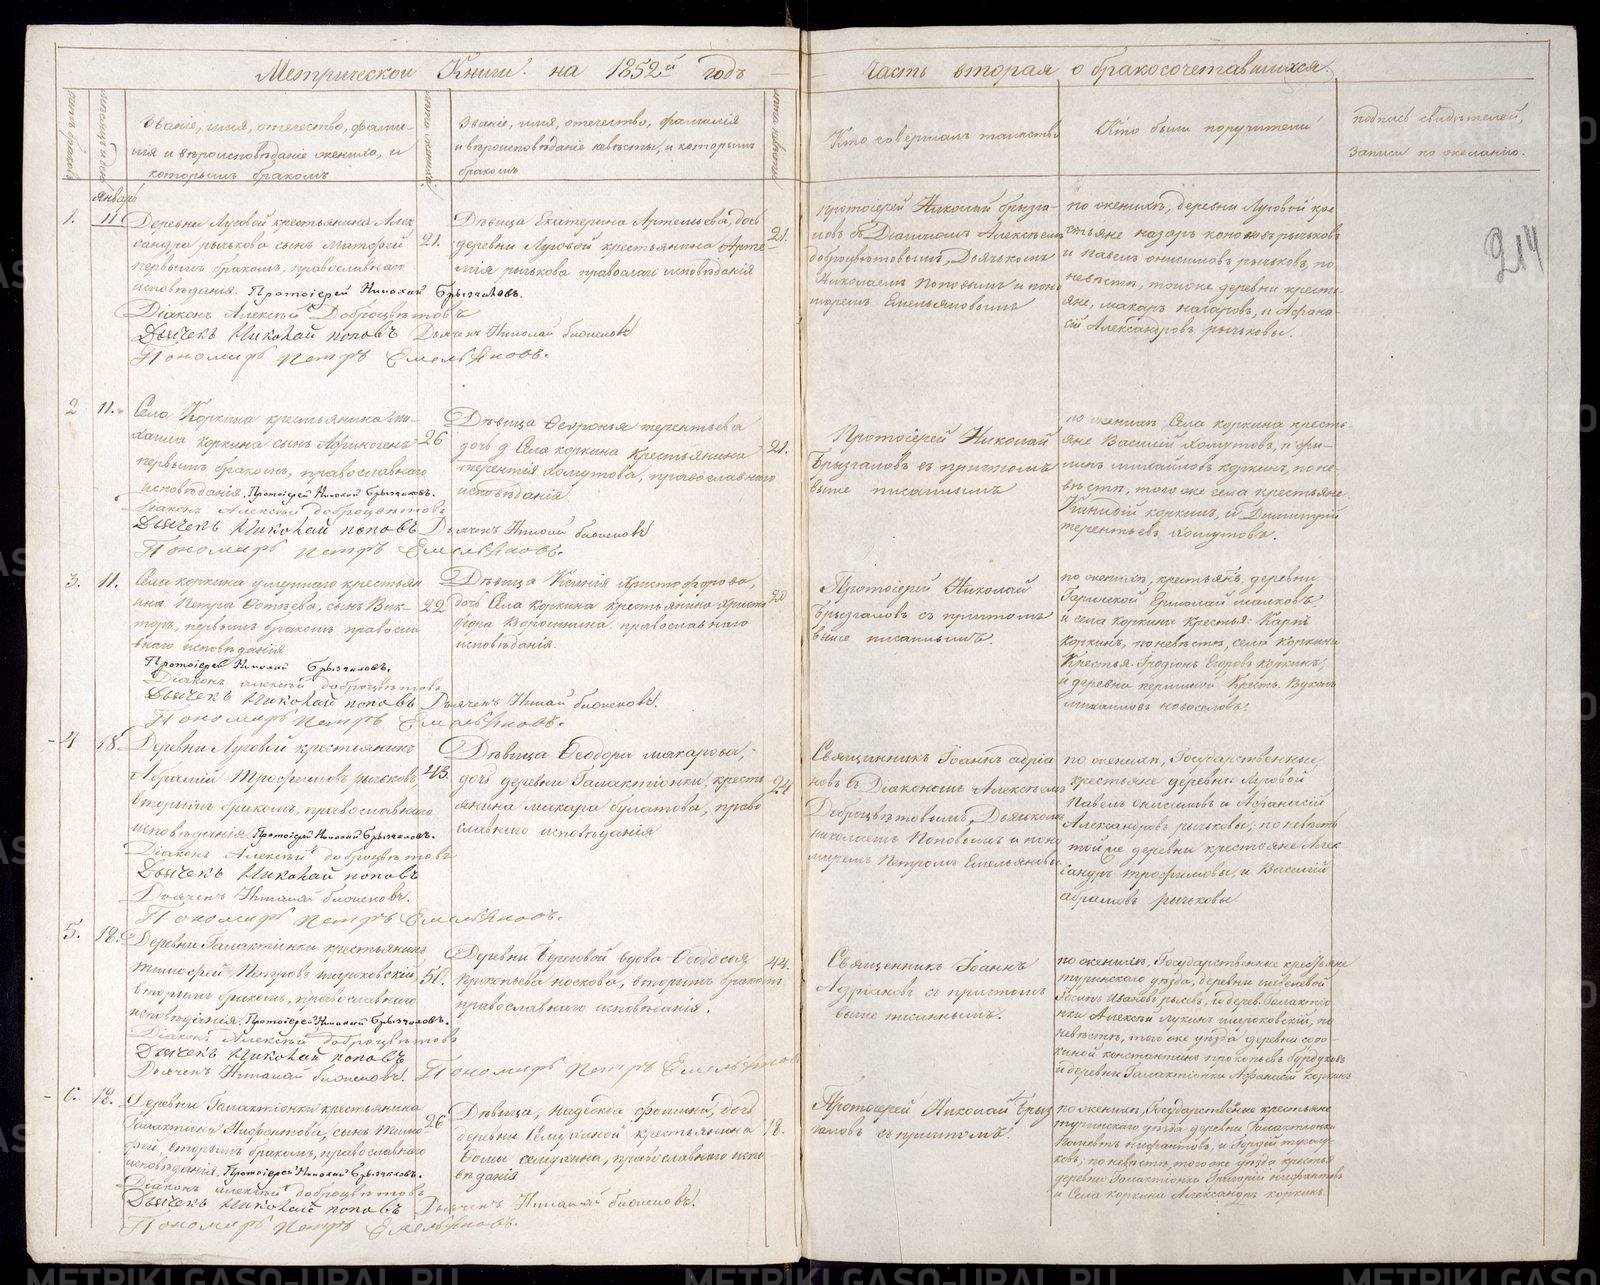 Метрической Книги на 1852й годъ
Часть вторая о бракосочетавшихся.
Званіе, имя, отечество, фами-
лія и вѣроисповѣданіе жениха, и
которымъ бракомъ
Званіе, имя, отечество, фамилія
и вѣроисповѣданіе невѣсты, и которымъ
бракомъ
Кто совершалъ таинство
Кто были поручители
подпись свидѣтелей,
Записи по желанію.
214
Январь
1. 11
Деревни Луговой крестьянина Алек
сандра рычкова сынъ Матфей
первымъ бракомъ, православнаго
исповѣданія. Протоіерей Николай Брызгаловъ.
Діаконъ Алексѣй Доброцвѣтовъ
Дьячекъ Николай поповъ Дьячекъ Николай
Пономарь Петръ Емельяновъ.
21.
Дѣвица Екатерина Артемьева, дочь
деревни Луговой крестьянина Арте-
мія рычкова православ исповѣданія
21.
протоіерей Николай брызга-
ловъ съ Діакономъ Алексѣемъ
доброцвѣтовымъ, Дьячкомъ
Николаемъ Поповымъ и поно
маремъ Емельяновымъ
по женихѣ, деревни Луговой кре
стьяне назаръ рычковъ
и павелъ онисимовъ рычковъ, по
невѣстѣ, тойже деревни кресть-
яне, макаръ назаровъ, и Афана-
сій Александровъ рычковы.
2 11.
Села Коркина крестьянина ми-
хаила коркина сынъ Афиногенъ
первымъ бракомъ, православнаго
исповѣданія. Протоіерей Николай Брызгаловъ.
Діаконъ Алексѣй доброцвѣтовъ
Дьячекъ Николай поповъ Дьячекъ Николай
Пономарь Петръ Емельяновъ.
26
Дѣвица Февронья терентьева
дочь Села коркина крестьянина
терентія Хомутова, православнаго
исповѣданія
21.
Протоіерей Николай
Брызгаловъ съ причтомъ
выше писаннымъ
по женихѣ Села коркина кресть-
яне Василій хомутовъ, и фи-
липъ михайловъ коркинъ, по не-
вѣстѣ, того же села крестьяне
коркинъ, и Димитрій
терентьевъ хомутовъ.
3. 11.
Села коркина умершаго крестьян
ина Петра сынъ Вик-
торъ, первымъ бракомъ правосла
внаго исповѣданія
Протоіерей Николай Брызгаловъ.
Діаконъ алексѣй доброцвѣтовъ
Дьячекъ Николай поповъ Дьячекъ Николай
Пономарь Петръ Емельяновъ.
22
Дѣвица Ксенія Христофорова,
дочь Села коркина крестьянина Христо
фора Ворошнина православнаго
исповѣданія.
Протоіерей Николай
Брызгаловъ съ причтомъ
выше писаннымъ
по женихѣ, крестьян. деревни
Ермолай
и села коркина крестья. Карпъ
коркинъ, по невѣстѣ, села коркина
Крестья. Родіонъ Егоровъ коркинъ,
и деревни Крест. Вуколъ
михайловъ новоселовъ.
4 18
Деревни Луговой крестьянинъ
Абрамій Трофимовъ рычковъ,
вторымъ бракомъ, православнаго
исповѣданія. Протоіерей Николай Брызгаловъ.
Діаконъ Алексѣй доброцвѣтовъ
Дьячекъ Николай поповъ
Дьячекъ Николай
Пономарь Петръ Емельяновъ.
43.
Дѣвица Феодора макарова,
дочь деревни Галактіонки, кресть
янина макара булатова, право
славнаго исповѣданія
24
Священникъ Іоаннъ адріа
новъ съ Діакономъ Алексѣемъ
Доброцвѣтовымъ, Дьячкомъ
николаемъ Поповымъ и поно
маремъ Петромъ Емельяновы
по женихѣ, Государственные
крестьяне деревни Луговой
Павелъ Онисимовъ и Афанасій
Александровъ рычковы; по невѣстѣ
той же деревни крестьяне Алек-
сандръ трофимовы, и Василій
абрамовъ рычковы
5. 18.
Деревни Галактіонки крестьянинъ
тимофей Петровъ широковскій,
вторымъ бракомъ, православнаго
исповѣданія. Протоіерей Николай Брызгаловъ.
Діаконъ Алексѣй доброцвѣтовъ
Дьячекъ Николай поповъ
Дьячекъ Николай Пономарь Петръ Емельяновъ
50.
Деревни Береговой вдова Феодосья
Прокопьева носкова, вторымъ бракомъ
православнаго исповѣданія.
44.
Священникъ Іоаннъ
Адріановъ съ причтомъ
выше писаннымъ.
по женихѣ, Государственные крестьяне
туринскаго уѣзда, деревни
Іосипъ Ивановъ и дерев. Галактіо
нки Алексѣй Лукинъ широковскій, по
невѣстѣ, того же уѣзда деревни соро
киной константинъ прокопьевъ бурдуковъ
и деревни Галактіонки Афанасій коркинъ
6. 18.
Деревни Галактіонки крестьянина
Галактіона Нифонтова, сынъ Тимо-
фей, вторымъ бракомъ, православнаго
исповѣданія. Протоіерей Николай Брызгаловъ.
Діаконъ алексѣй доброцвѣтовъ
Дьячекъ Николай поповъ Дьячекъ Николай
Пономарь Петръ Емельяновъ.
26
Дѣвица, Надежда фомина, дочь
деревни Семухиной крестьянина
Фомы семухина, православнаго испо
вѣданія
18.
Протоіерей Николай Брыз
галовъ съ причтомъ.
по женихѣ, Государственные крестьяне
туринскаго уѣзда деревни Галактіонки
нифантовъ, и
по невѣстѣ, того же уѣзда крестья
деревни Галактіонки Григорій нифантовъ
и Села коркина Александръ коркинъ
METRIKI.GASO-URAL.RU